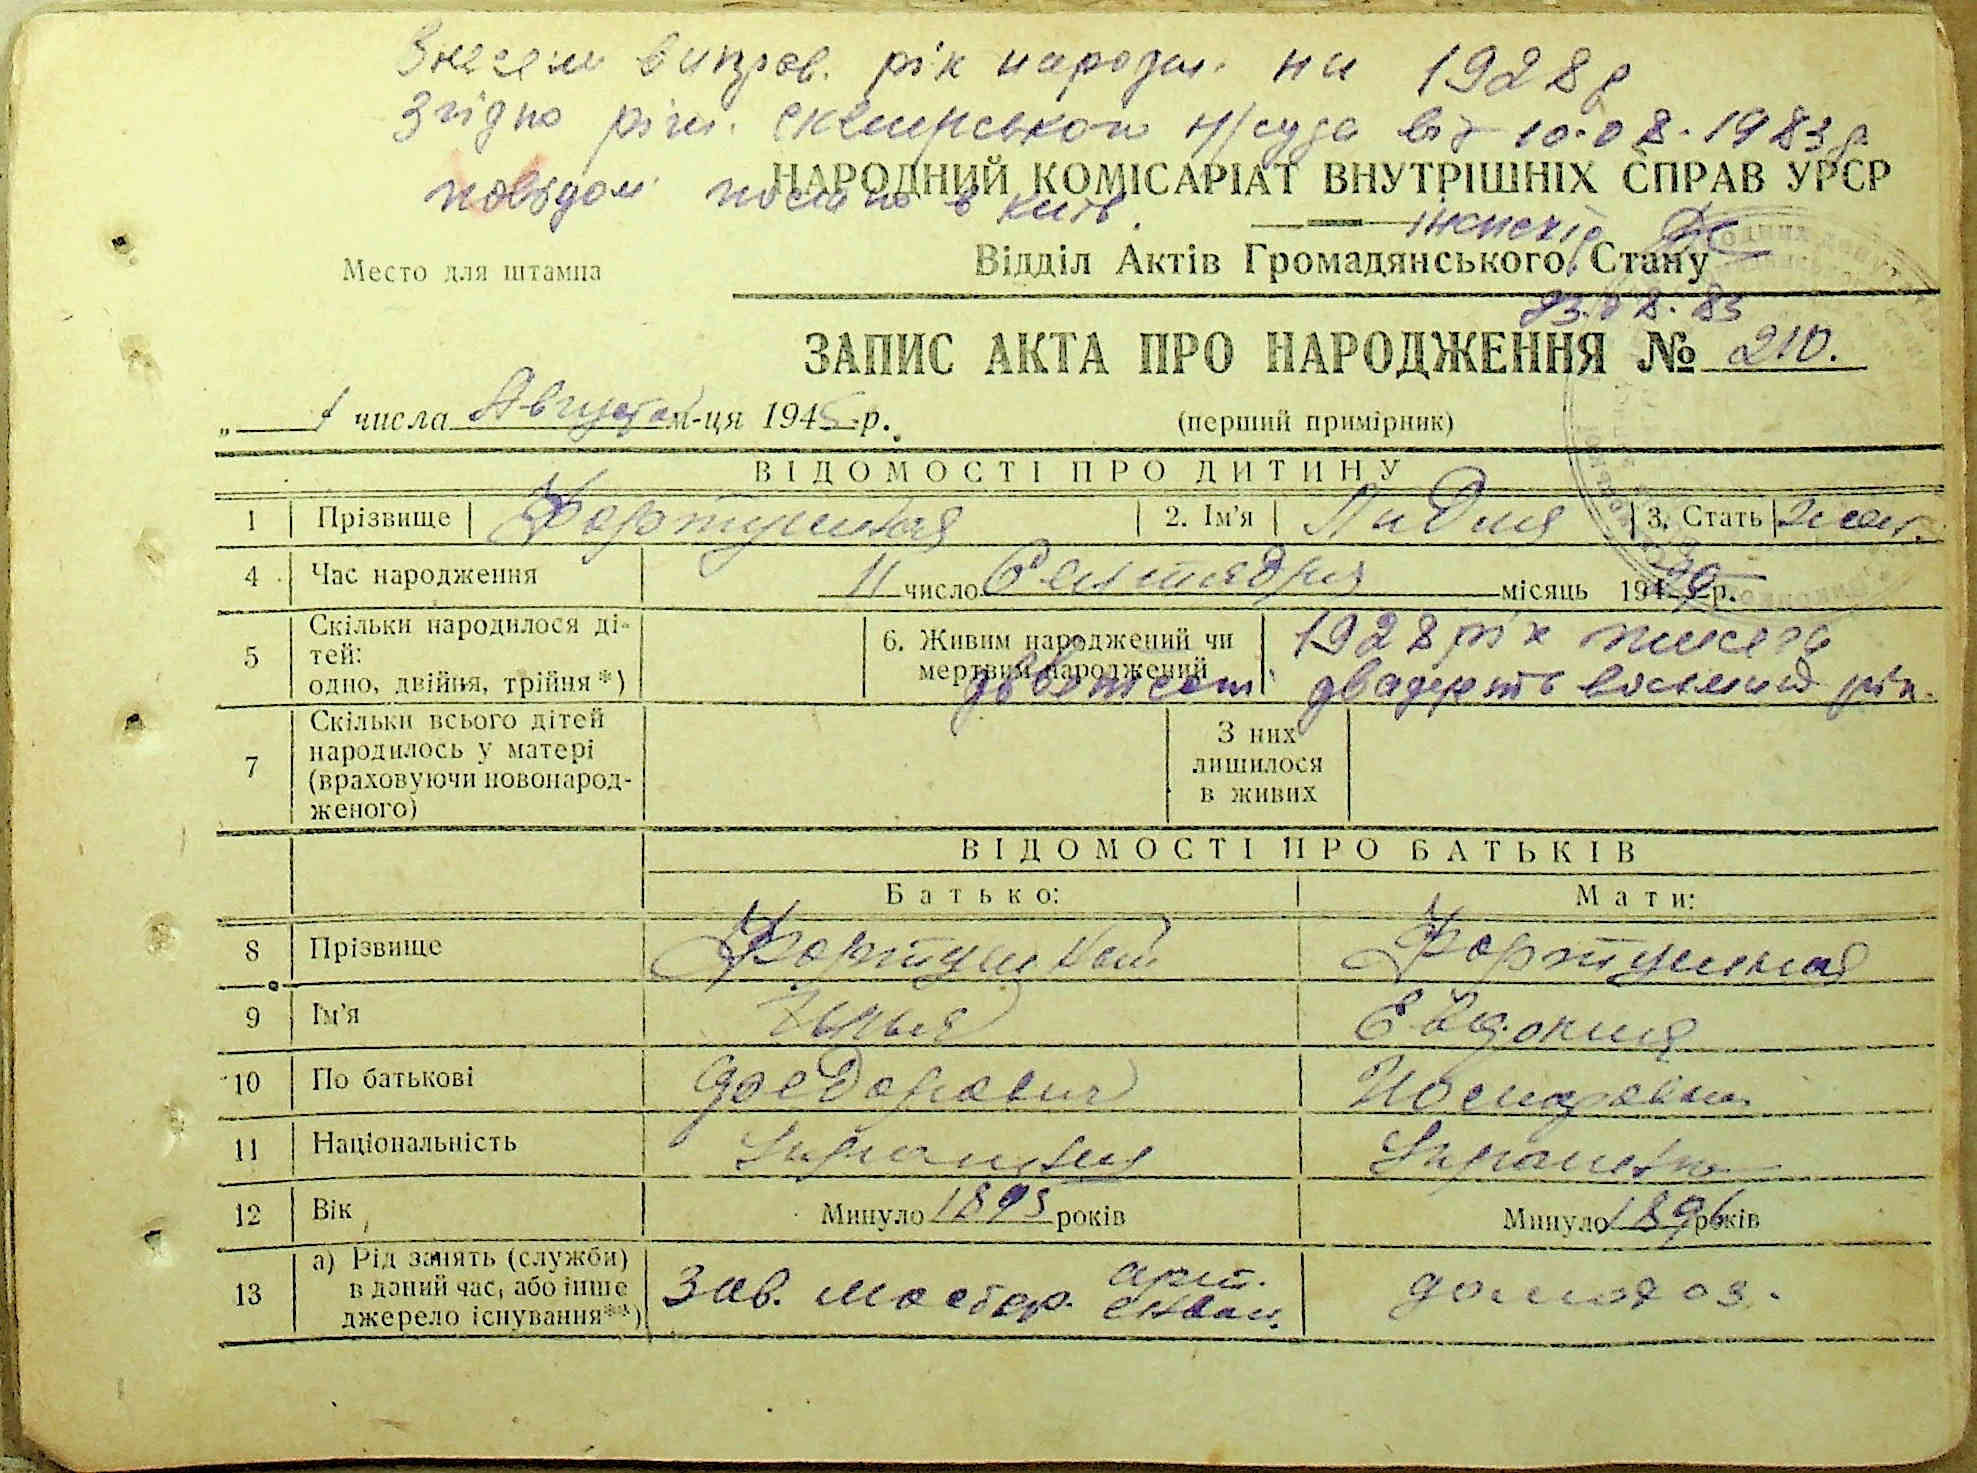 Внесен виправ. рік народж. на 1928 р
Згідно ріш. Сквирського н/суда від 10.08.1983 р.
НАРОДНИЙ КОМІСАРІАТ ВНУТРІШНІХ СПРАВ УРСР
повідом. послано в Київ.
інспектор
Место для штампа
Відділ Актів Громадянського Стану
23.08.83
ЗАПИС АКТА ПРО НАРОДЖЕННЯ № 210.
„ 1 числа Августа м-ця 1945 р.
(перший примірник)
ВІДОМОСТІ ПРО ДИТИНУ
1 Прізвище Фортунская 2. Ім'я Лидия 3. Стать жен.
4 Час народження 11 число Сентября місяць 194 р.
5 Скільки народилося ді-
тей:
одно, двійня, трійня*)
6. Живим народжений чи
мертвим народжений
1928 рік тисяча
дев'ятсот двадцять восьмий рік.
7 Скільки всього дітей
народилось у матері
(враховуючи новонарод-
женого)
З них
лишилося
в живих
ВІДОМОСТІ ПРО БАТЬКІВ
Батько: Мати:
8 Прізвище Фортунский Фортунская
9 Ім'я Илья Евдокия
10 По батькові Федорович
11 Національність Украинец Украинка
12 Вік Минуло 1895 років Минуло 1896 років
13 а) Рід занять (служби)
в даний час, або інше
джерело існування**)
Зав. мастер. арт.
домохоз.